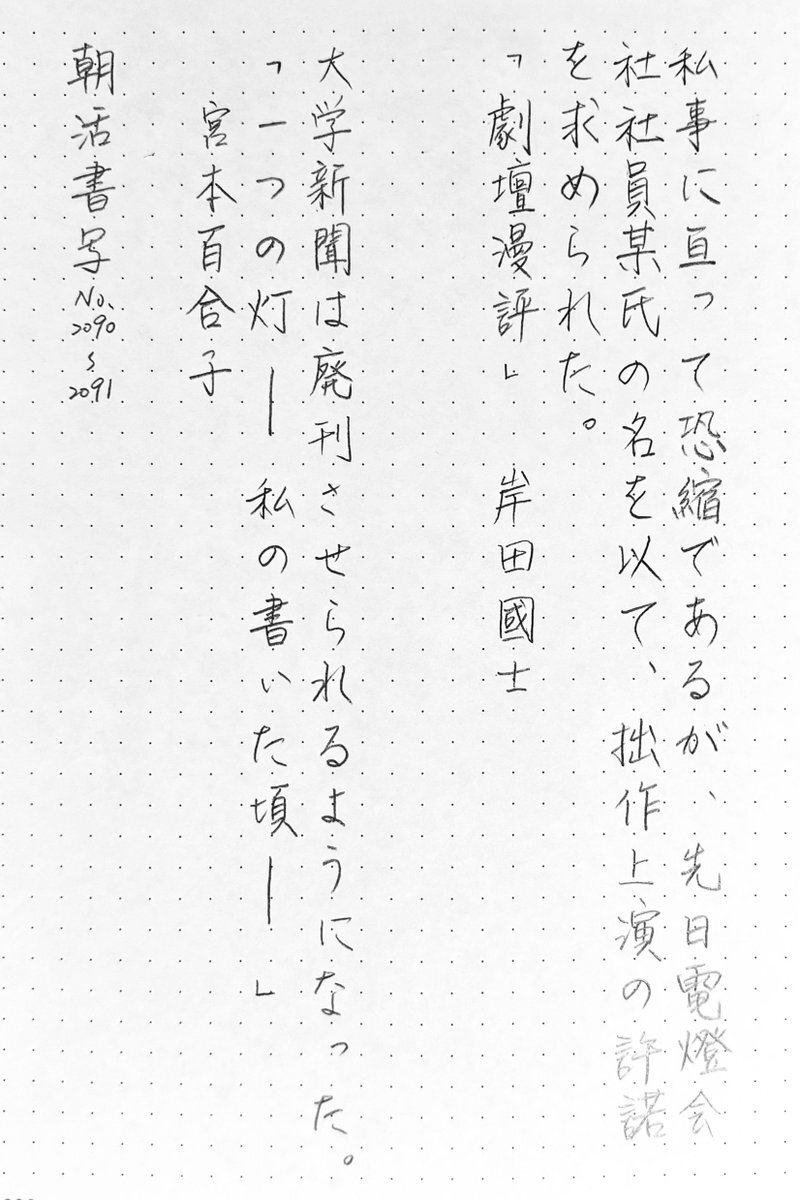 私事に亘って恐縮であるが、先日電燈会
社社員某氏の名を以て、拙作上演の許諾
を求められた。
「劇壇漫評」 岸田國士
大学新聞は廃刊させられるようになった。
「一つの灯 ― 私の書いた頃 ― 」
宮本百合子
朝活書写 No. 2090 〜 2091